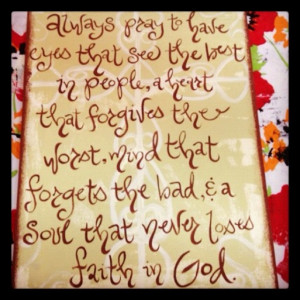 always pray to have
eyes that see the best
in people, a heart
that forgives the
worst, mind that
forgets the bad, & a
soul that never loses
faith in God.